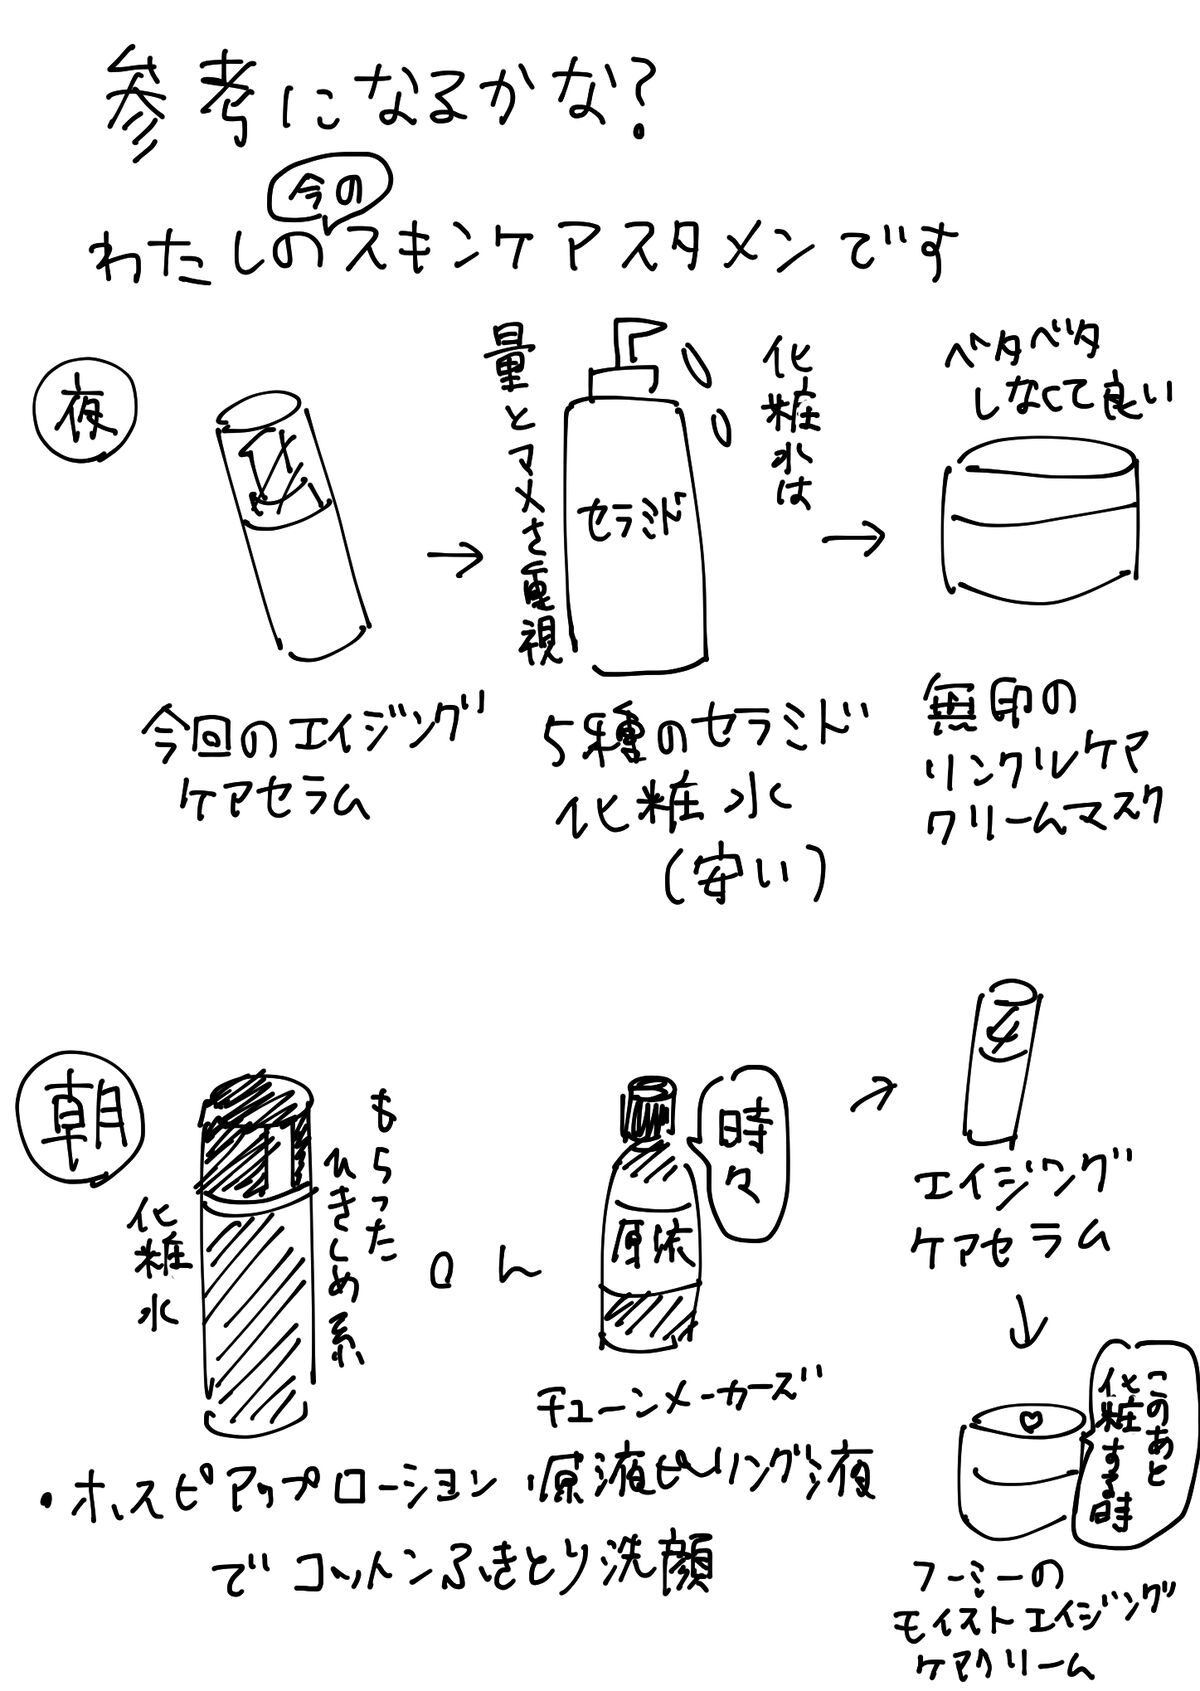 参考になるかな?
今の
わたしのスキンケアスタメンです
夜
今回のエイジング
ケアセラム
化粧水は
量とマメさ重視
セラミド
5種のセラミド
化粧水
(安い)
ベタベタ
しなくて良い
無印の
リンクルケア
クリームマスク
朝
もらった
ひきしめ系
化粧水
or
時々
原液
チューンメーカーズ
・ホスピアップローション 原液ピーリング液
でコットンふきとり洗顔
エイジング
ケアセラム
このあと
化粧する時
フーミーの
モイストエイジング
ケアクリーム